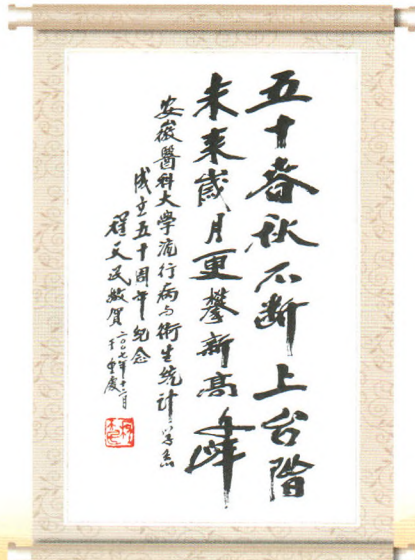 五十春秋不断上台階
未来歲月更攀新高峰
安徽醫科大學流行病与衛生统计学系
成立五十周年纪念
程天民敬賀
二〇〇七年十二月
于重慶